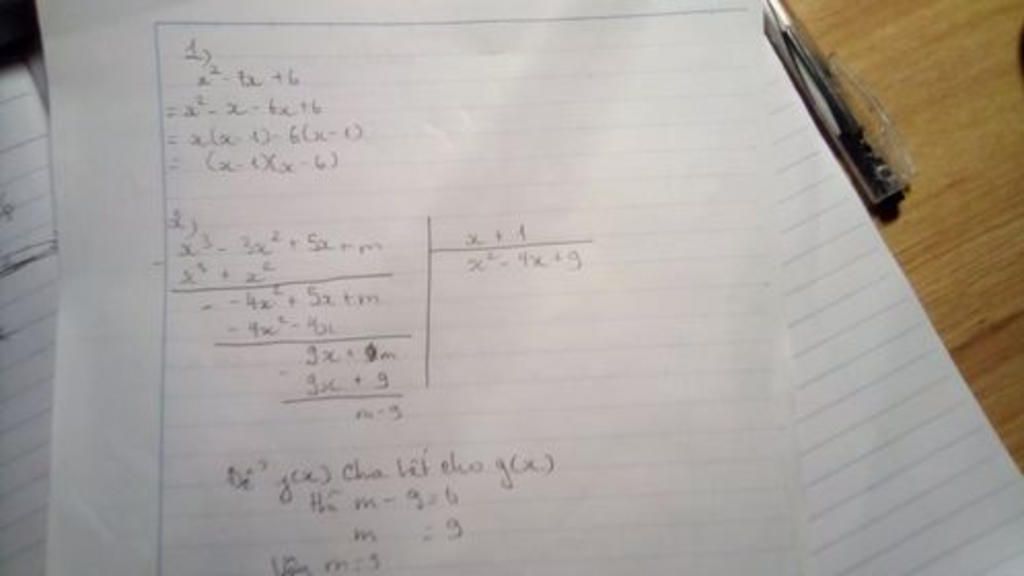 1,
x² - 7x + 6
= x² - x - 6x + 6
= x(x - 1) - 6(x - 1)
= (x - 1)(x - 6)
2,
x³ - 3x² + 5x + m
x + 1
x³ + x²
x² - 4x + 9
- 4x² + 5x + m
- 4x² - 4x
9x + m
9x + 9
m - 9
Để f(x) chia hết cho g(x)
thì m - 9 = 0
m = 9
Vậy m = 9